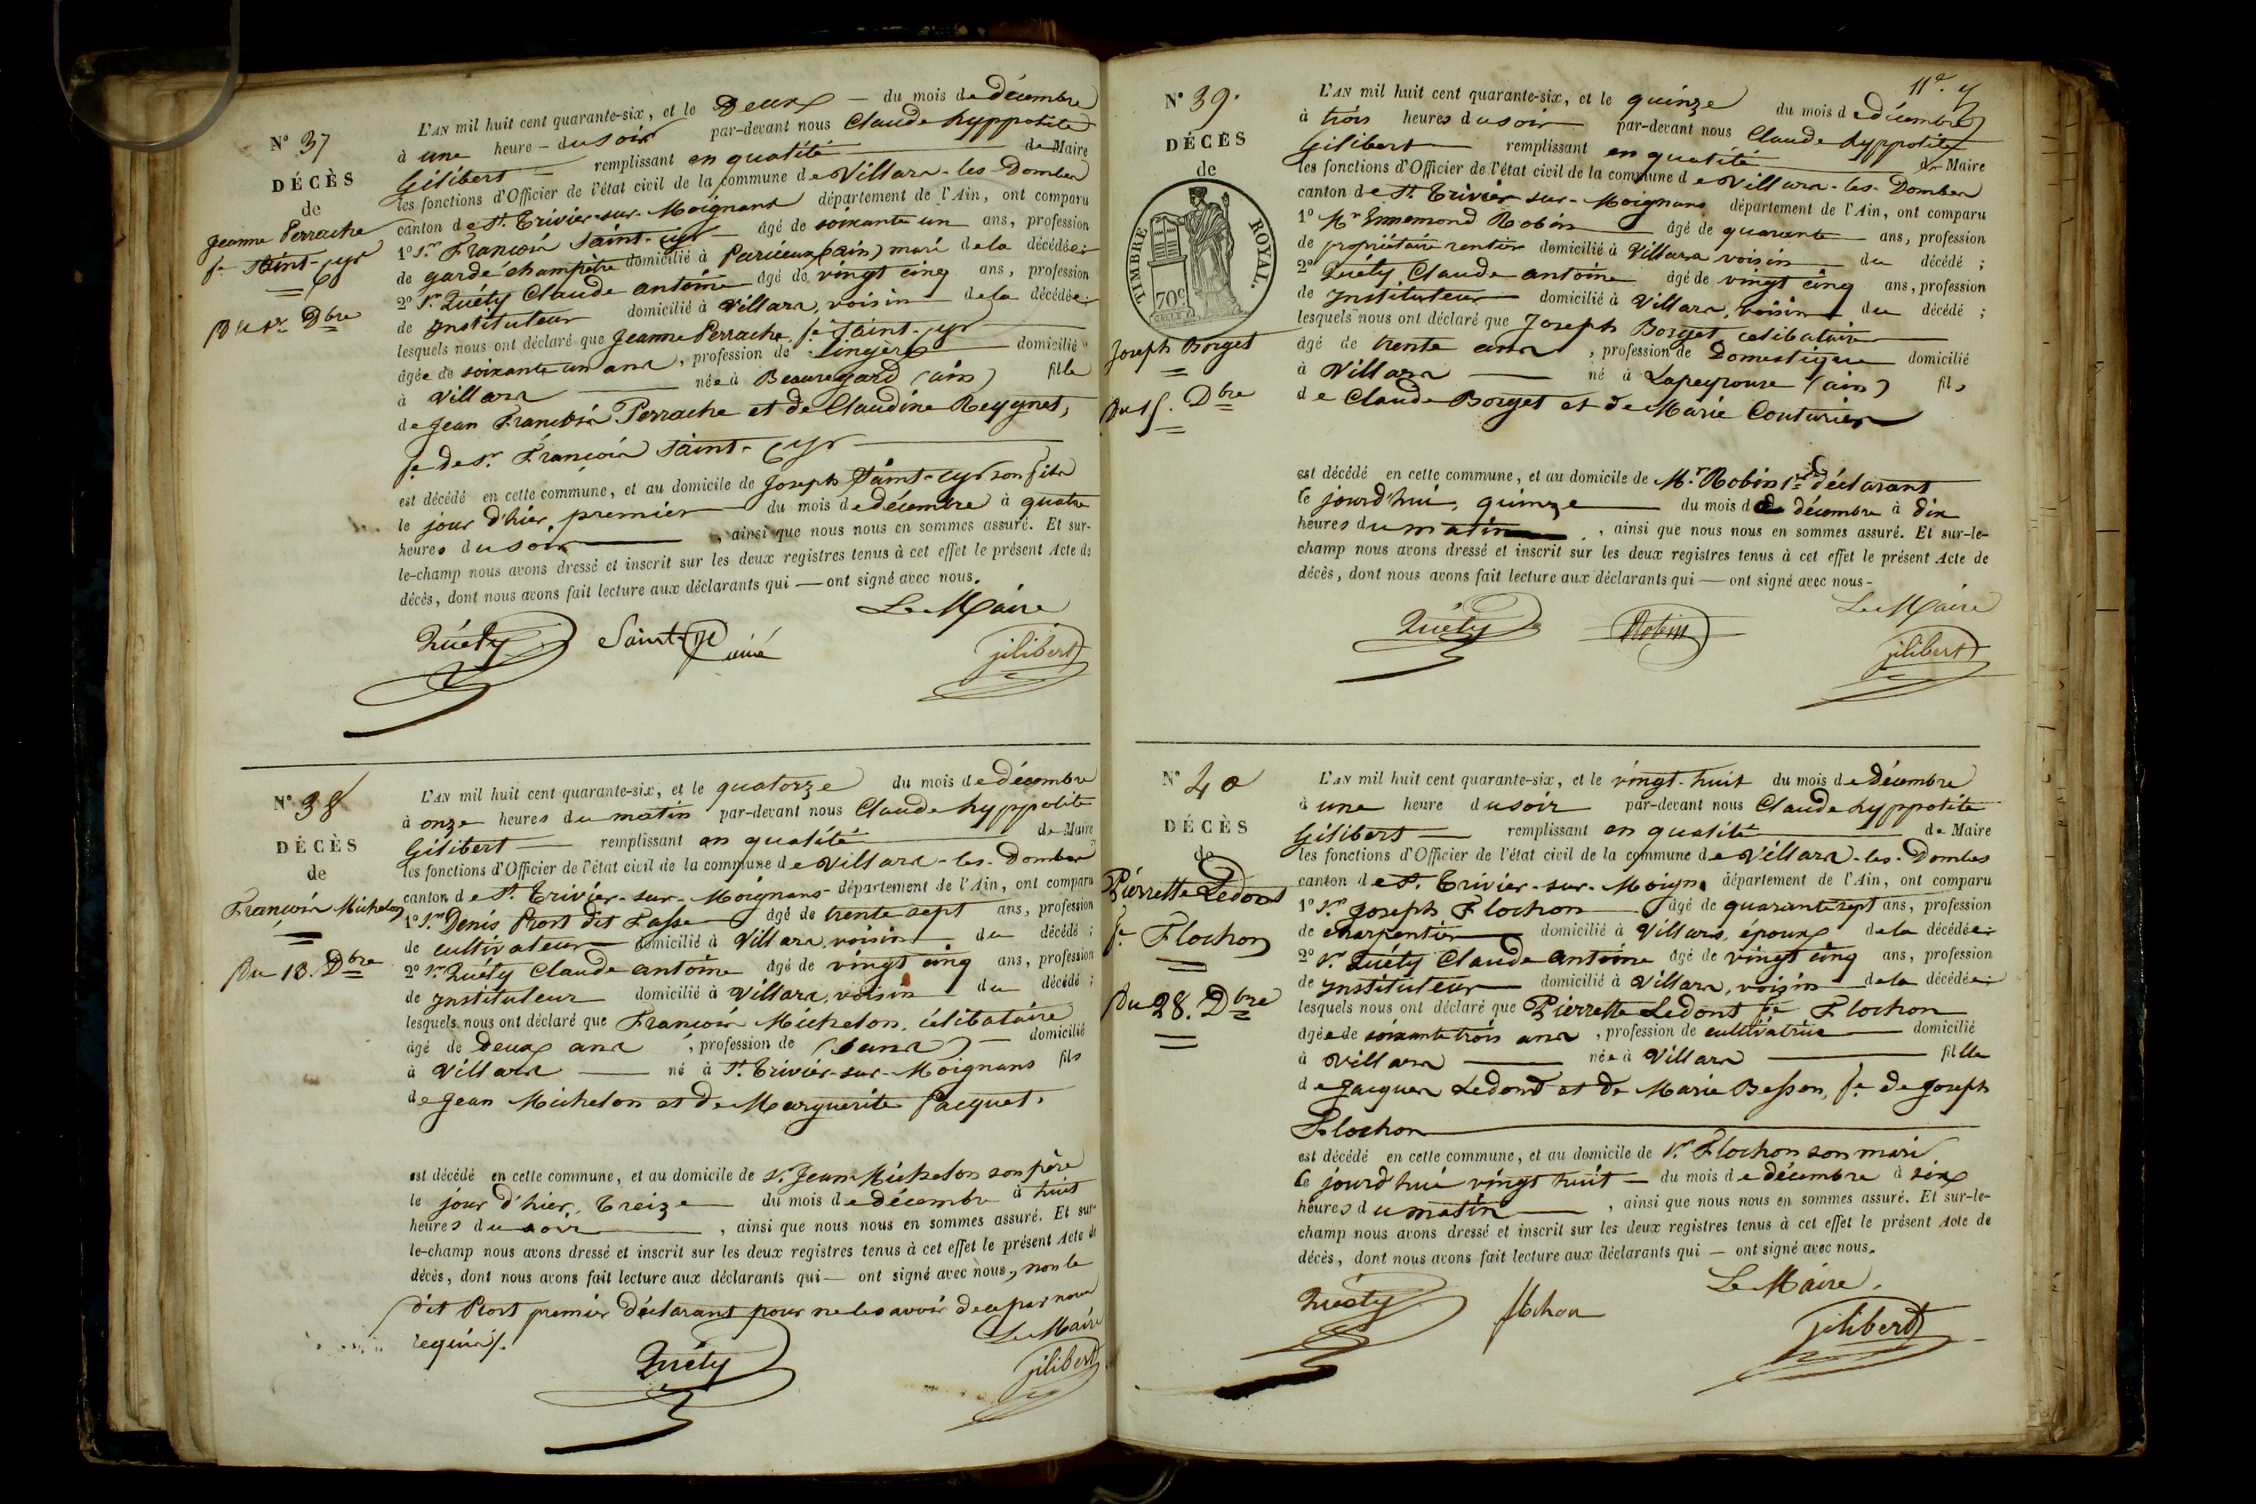 N° 37
DÉCÈS
de
Jeanne Perrache
fe Saint-Cyr
Du 1er Dbre
L'AN mil huit cent quarante-six, et le Deux — du mois de décembre
à une heure – du soir par-devant nous Claude hyppolite
Gilibert — remplissant en qualité de Maire
les fonctions d'Officier de l'état civil de la commune de Villars-les-Dombes
canton de St. Trivier-sur-Moignans département de l'Ain, ont comparu
1° Sr. François Saint-Cyr âgé de soixante un ans, profession
de garde champêtre domicilié à (ain) mari de la décédée;
2° Sr. Quéty Claude antoine âgé de vingt cinq ans, profession
de Instituteur domicilié à Villars, voisin de la décédée;
lesquels nous ont déclaré que Jeanne Perrache, fe Saint-Cyr
âgée de soixante un ans, profession de Lingère domiciliée
à Villars — née à Beauregard (ain) fille
de Jean François Perrache et de Claudine Reygnet,
fe de Sr. François Saint-Cyr
est décédé en cette commune, et au domicile de Joseph Saint-Cyr son fils
le jour d'hier, premier du mois de décembre à quatre
heures du soir, ainsi que nous nous en sommes assuré. Et sur-
le-champ nous avons dressé et inscrit sur les deux registres tenus à cet effet le présent Acte de
décès, dont nous avons fait lecture aux déclarants qui — ont signé avec nous.
Le Maire
Quéty Saint-Cyr ainé Gilibert
N° 38
DÉCÈS
de
François Michelon
Du 13. Dbre
L'AN mil huit cent quarante-six, et le quatorze du mois de décembre
à onze heures du matin par-devant nous Claude hyppolite
Gilibert — remplissant en qualité de Maire
les fonctions d'Officier de l'état civil de la commune de Villars-les-Dombes
canton de St. Trivier-sur-Moignans département de l'Ain, ont comparu
1° Sr. Denis Prost dit Fasse âgé de trente sept ans, profession
de cultivateur domicilié à Villars, voisin du décédé;
2° Sr. Quéty Claude antoine âgé de vingt cinq ans, profession
de Instituteur domicilié à Villars, voisin du décédé;
lesquels nous ont déclaré que François Michelon, célibataire
âgé de Deux ans, profession de (sans) — domicilié
à Villars — né à St. Trivier-sur-Moignans fils
de Jean Michelon et de Marguerite Pacquet.
est décédé en cette commune, et au domicile de Sr. Jean Michelon son père
le jour d'hier, Treize du mois de décembre à huit
heures du soir, ainsi que nous nous en sommes assuré. Et sur-
le-champ nous avons dressé et inscrit sur les deux registres tenus à cet effet le présent Acte de
décès, dont nous avons fait lecture aux déclarants qui — ont signé avec nous, non le
dit Prost premier déclarant pour ne le savoir de ce par nous
requis/.
Le Maire
Quéty Gilibert
11e.
N° 39.
DÉCÈS
de
TIMBRE ROYAL.
70c
Joseph Borget
Du 15. Dbre
L'AN mil huit cent quarante-six, et le quinze du mois de décembre
à trois heures du soir par-devant nous Claude hyppolite
Gilibert — remplissant en qualité de Maire
les fonctions d'Officier de l'état civil de la commune de Villars-les-Dombes
canton de St. Trivier-sur-Moignans département de l'Ain, ont comparu
1° Mr. Ennemond Robin âgé de quarante ans, profession
de propriétaire rentier domicilié à Villars voisin du décédé;
2° Quéty Claude antoine âgé de vingt cinq ans, profession
de Instituteur domicilié à Villars, voisin du décédé;
lesquels nous ont déclaré que Joseph Borget célibataire
âgé de trente ans, profession de Domestique domicilié
à Villars — né à Lapeyrouse (ain) fils
de Claude Borget et de Marie Couturier
est décédé en cette commune, et au domicile de Mr. Robin 1er déclarant
le jourd'hui, quinze du mois de décembre à dix
heures du matin, ainsi que nous nous en sommes assuré. Et sur-le-
champ nous avons dressé et inscrit sur les deux registres tenus à cet effet le présent Acte de
décès, dont nous avons fait lecture aux déclarants qui — ont signé avec nous-
Le Maire
Quéty Robin Gilibert
N° 40
DÉCÈS
de
Pierrette Ledont
fe Flochon
Du 28. Dbre
L'AN mil huit cent quarante-six, et le vingt-huit du mois de décembre
à une heure du soir par-devant nous Claude hyppolite
Gilibert — remplissant en qualité de Maire
les fonctions d'Officier de l'état civil de la commune de Villars-les-Dombes
canton de St. Trivier-sur-Moign. département de l'Ain, ont comparu
1° Sr. Joseph Flochon âgé de quarante sept ans, profession
de charpentier domicilié à Villars, époux de la décédée;
2° Sr. Quéty Claude antoine âgé de vingt cinq ans, profession
de Instituteur domicilié à Villars, voisin de la décédée;
lesquels nous ont déclaré que Pierrette Ledont fe Flochon
âgée de soixante trois ans, profession de cultivatrice domicilié
à Villars — née à Villars fille
de Jacques Ledont et de Marie Besson, fe de Joseph
Flochon
est décédé en cette commune, et au domicile de Sr. Flochon son mari
le jourd'hui vingt huit — du mois de décembre à six
heures du matin, ainsi que nous nous en sommes assuré. Et sur-le-
champ nous avons dressé et inscrit sur les deux registres tenus à cet effet le présent Acte de
décès, dont nous avons fait lecture aux déclarants qui — ont signé avec nous.
Le Maire.
Quéty flochon Gilibert